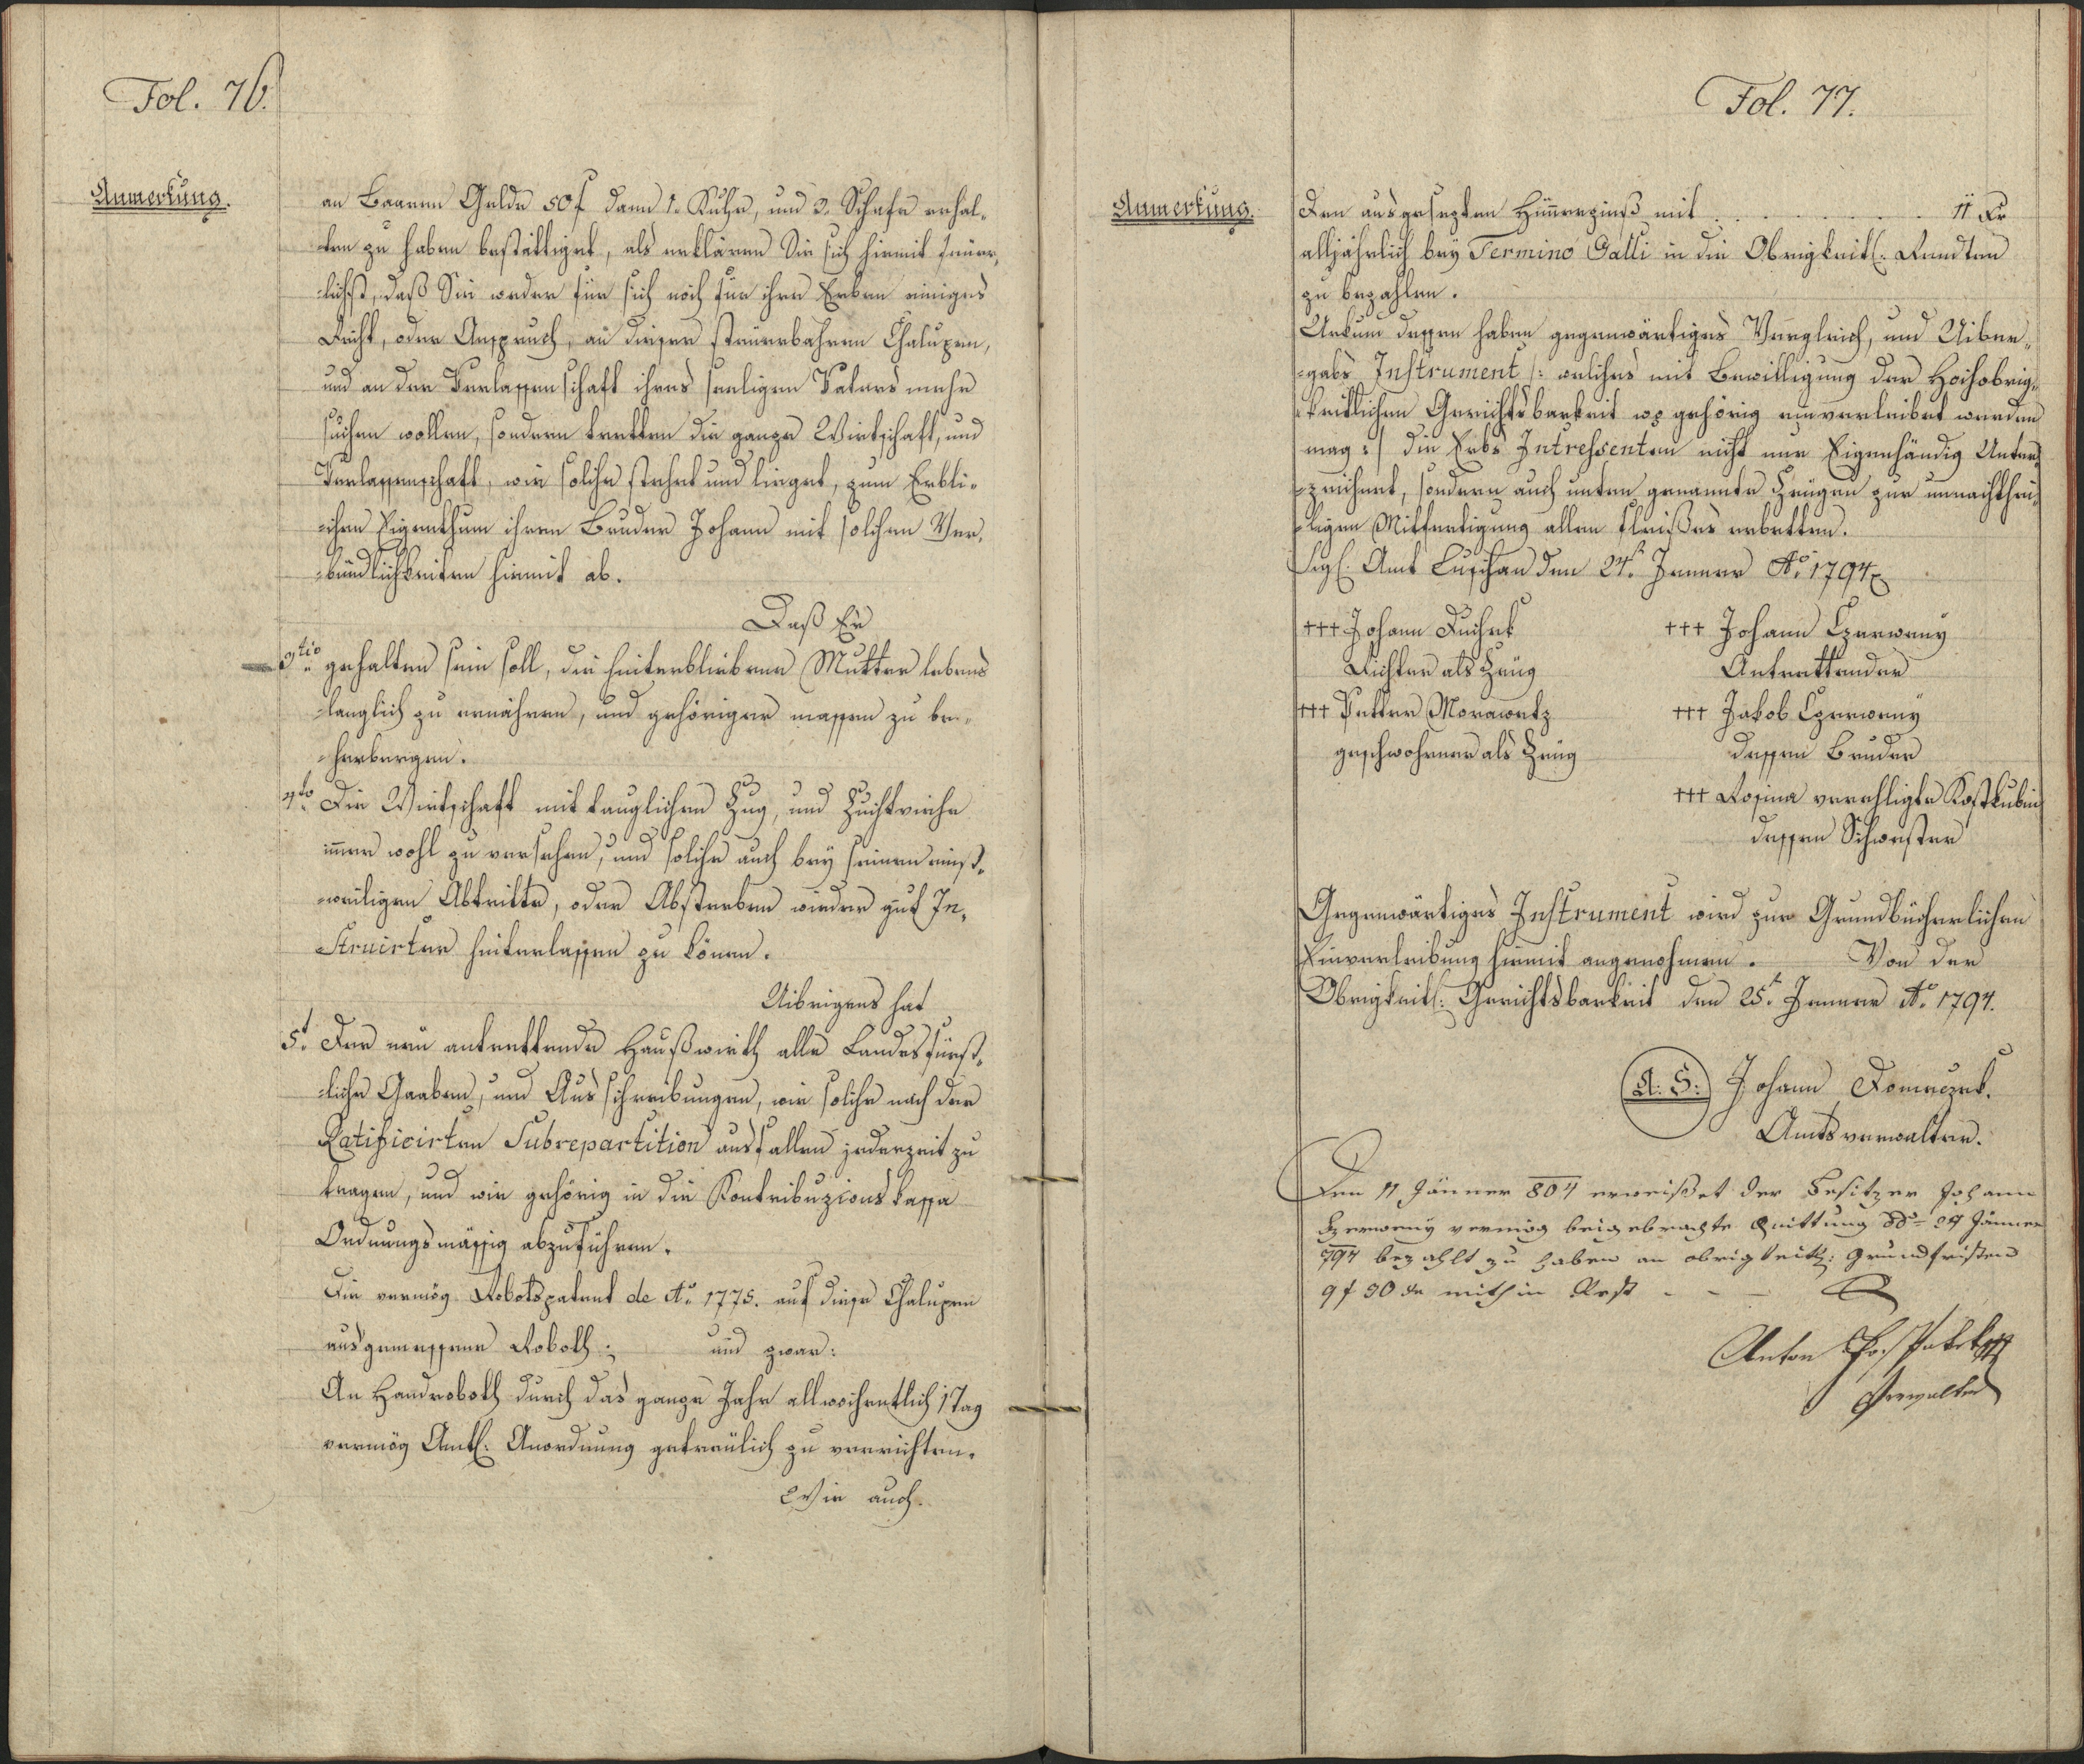 Fol. 76.
Anmerkung.
an Baaren Gelde 50 f dann 1. Kuhe, und 2. Schafe erhal-
ten zu haben bestättiget, als erklären Sie sich hiemit feüer-
lichst, daß Sie weder für sich noch für ihre Erben einiges
Recht, oder Anspruch, an dieser steüerbahren Chalupen,
und an der Verlassenschaft ihres seeligen Vaters mehr
suchen wollen, sondern tretten die ganze Wirtschaft, und
Verlassenschaft, wie solche stehet und lieget, zum Erbli-
chen Eigenthum ihrem Bruder Johann mit solchen Ver-
bündlichkeiten hiemit ab.
Daß Er
3tio gehalten sein soll, die hinterbliebene Mutter lebens
länglich zu ernähren, und gehöriger massen zu be-
herbergen.
4to Die Wirtschaft mit tauglichen Zug, und Zuchtviehe
immer wohl zu versehen, und solche auch bey seinen einst-
weiligen Abtritte, oder Absterben wieder gut In-
struirter hinterlassen zu könen.
Uibrigens hat
5t. Der neu antrettende Haußwirth alle Landesfürst-
liche Gaaben, und Ausschreibungen, wie solche nach der
Ratificirten Subrepartition ausfallen jederzeit zu
tragen, und wie gehörig in die Kontribuzions kassa
Ordnungsmässig abzuführen.
Die vermög Robotspatent de Ao. 1775. auf diese Chalupen
ausgemessene Roboth; und zwar:
An Handroboth durch das ganze Jahr allwochentlich 1 Tag
vermög Amtl. Anordnung getreülich zu verrichten.
Wie auch.
Fol. 77.
Anmerkung.
Den ausgesezten Hünerzinß mit . . . . . . . 11 Xr
alljährlich bey Termino Galli in die Obrigkeitl. Rendten
zu bezahlen.
Urkund dessen haben gegenwärtiges Vergleich, und Uiber-
gabs Instrument /: welches mit Bewilligung der Hochobrig-
keitlichen Gerichtsbarkeit wo gehörig einverleibet werden
mag :/ die Erbs Intressenten nicht nur Eigenhändig Unter-
zeichnet, sondern auch unten genannte Zeügen zur unnachthei-
ligen Mitfertigung allen Fleißes erbetten.
Sigl. Amt Luschan den 24t. Jenner Ao. 1794
+++ Johann Duchek +++ Johann Czerweny
Richter als Zeüg Antrettender
+++ Petter Morawetz +++ Jakob Czerweny
geschwohrner als Zeüg dessen Bruder
+++ Rosina verehligte Kostkubin
dessen Schwester
Gegenwärtiges Instrument wird zur Grundbücherlichen
Einverleibung hiemit angenohmen. Von der
Obrigkeitl. Gerichtsbarkeit den 25t. Jenner Ao. 1794.
L: S: Johann Domeczek.
Amtsverwalter.
Den 11 Jänner 804 erweißet der Besitzer Johann
Czerweny vermög beigebrachte Quittung ddo 24 Jänner
794 bezahlt zu haben an obrigkeitl: Grundfristen
9 f 30 xr mithin Rest - - -
Anton
Verwalter